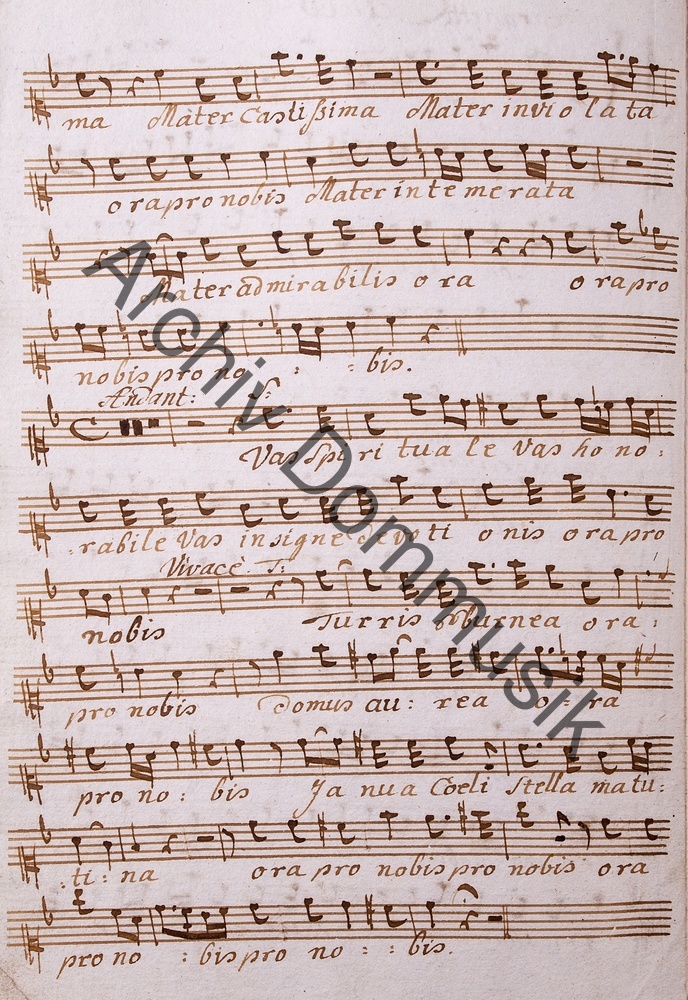 ma Mater Castissima Mater inviolata
ora pro nobis Mater intemerata
Mater admirabilis ora ora pro
nobis pro no : : bis.
Andant: S:
Vas Spiri tua le Vas ho no :
: rabile Vas insigne devoti onis ora pro
Vivacè T:
nobis Turris eburnea ora :
pro nobis Domus au : rea o : ra
pro no : bis Ja nua Coeli Stella matu :
: ti : na ora pro nobis pro nobis ora
pro no : bis pro no : : bis.
Archiv Dommusik